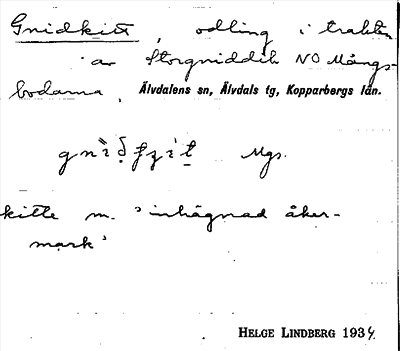 Gnidkitt, odling i trakten
av Storgniddik NO Mångs-
bodarna, Älvdalens sn, Älvdals tg, Kopparbergs län.
Mgs.
kitte m. 'inhägnad åker-
mark'
HELGE LINDBERG 1934.